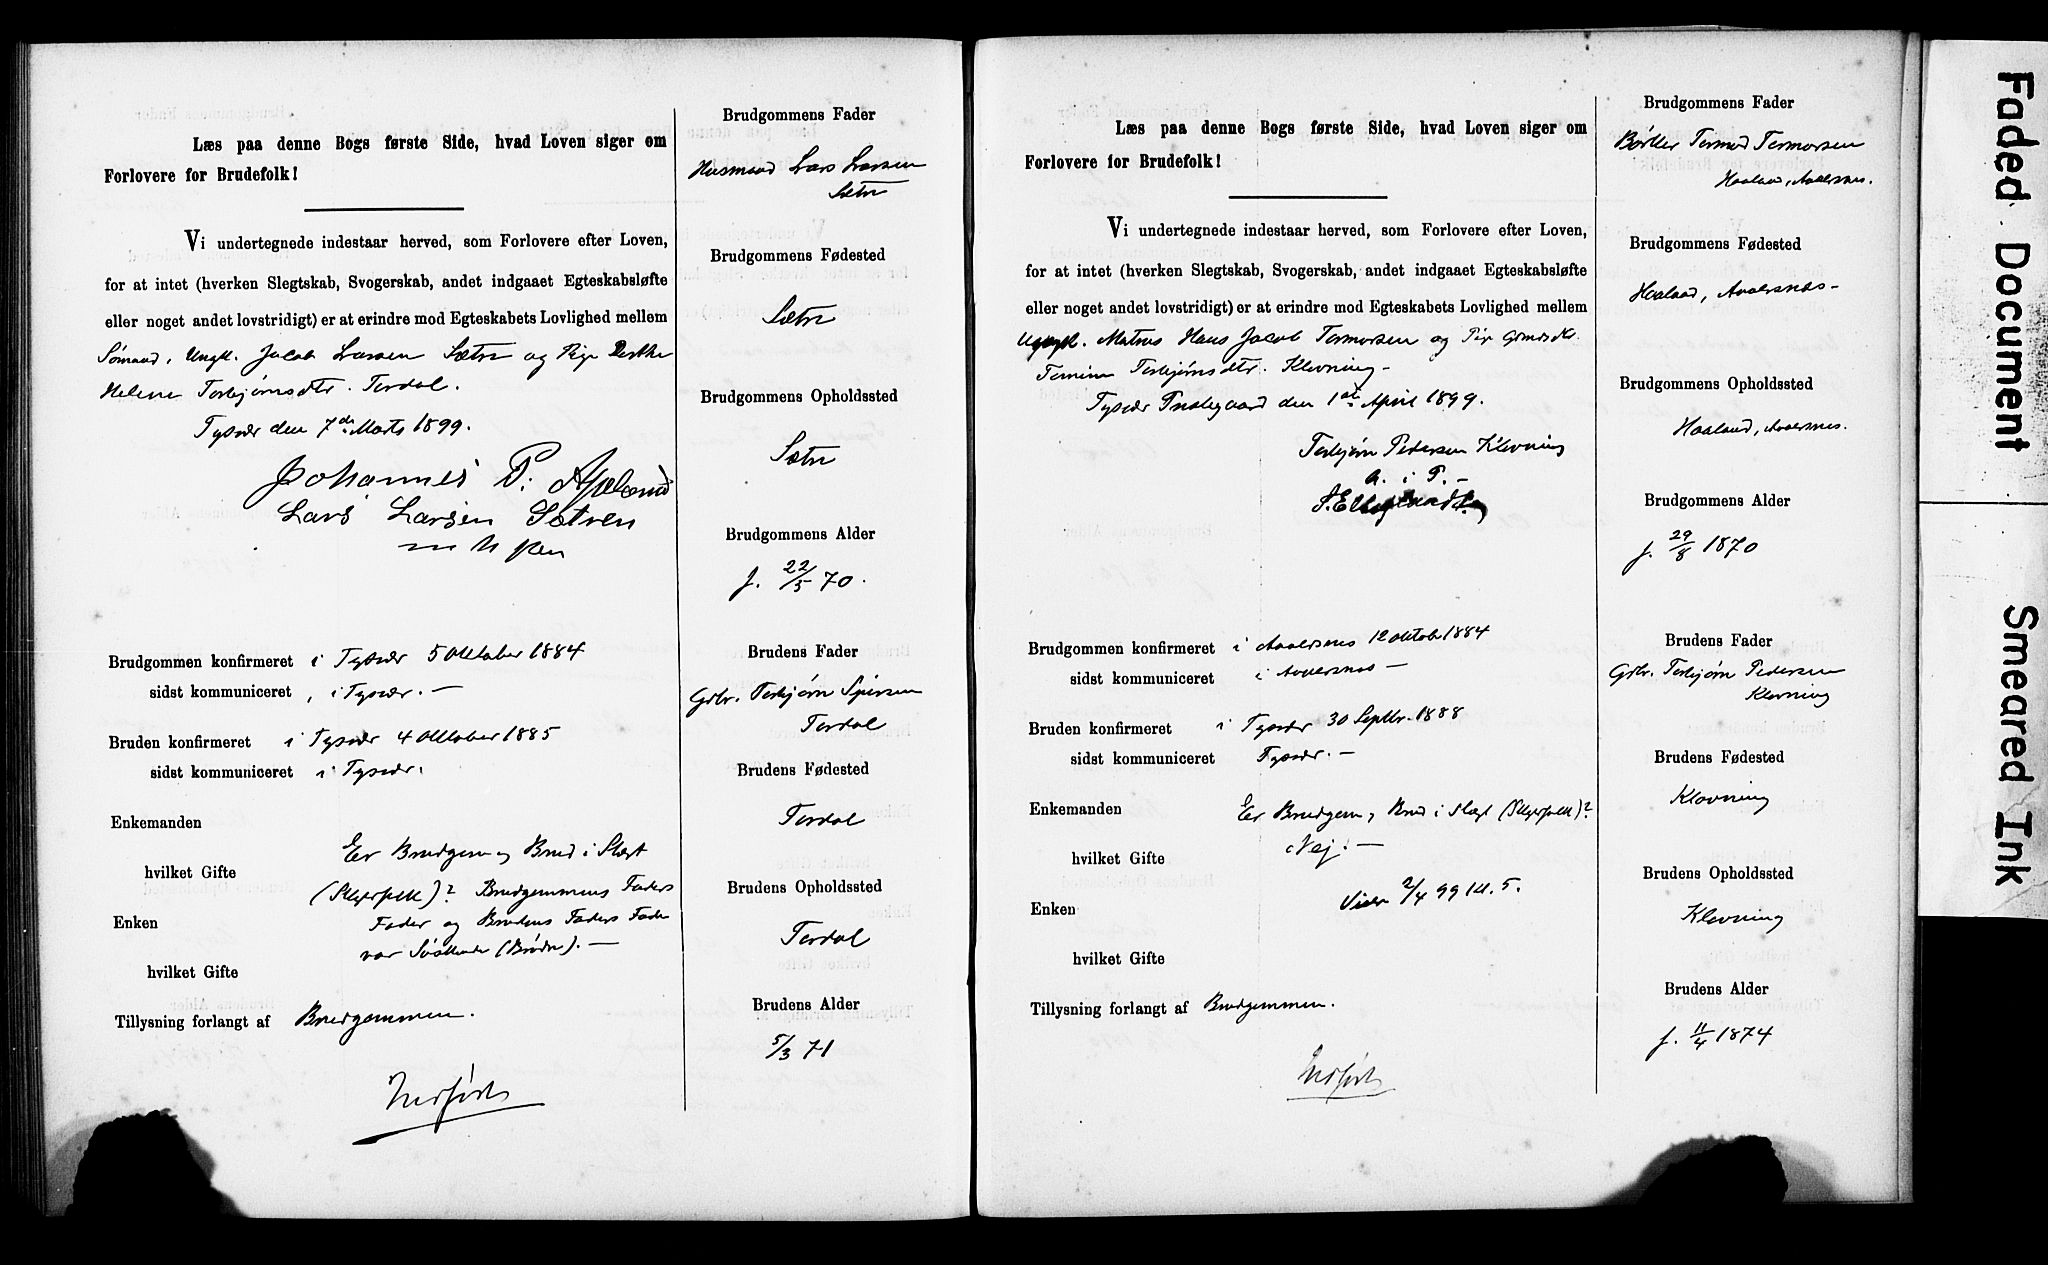 Læs paa denne Bogs første Side, hvad Loven siger om
Forlovere for Brudefolk!
Vi undertegnede indestaar herved, som Forlovere efter Loven,
for at intet (hverken Slegtskab, Svogerskab, andet indgaaet Egteskabsløfte
eller noget andet lovstridigt) er at erindre mod Egteskabets Lovlighed mellem
Sømand, Ungk. Jacob Larsen Sætre og Pige
Helene Torbjørnsdtr. Tordal.
Tysvær den 7de Marts 1899.
Johannes P.
Lars Larsen Sætren
m pen
Brudgommen konfirmeret i Tysvær 5 Oktober 1884
sidst kommuniceret , i Tysvær. —
Bruden konfirmeret i Tysvær 4 Oktober 1885
sidst kommuniceret i Tysvær.
Enkemanden
Er Brudgom og Brud i Slægt
hvilket Gifte
(Skyldfolk)? Brudgommens Faders
Enken
Fader og Brudens Faders Fader
var Søskende (Brødre). —
hvilket Gifte
Tillysning forlangt af Brudgommen.
Indført
Brudgommens Fader
Husmand Lars Larsen
Sætre
Brudgommens Fødested
Sætre
Brudgommens Opholdssted
Sætre
Brudgommens Alder
f. 22/5 70.
Brudens Fader
Gbr. Torbjørn
Tordal
Brudens Fødested
Tordal
Brudens Opholdssted
Tordal
Brudens Alder
5/3 71
Læs paa denne Bogs første Side, hvad Loven siger om
Forlovere for Brudefolk!
Vi undertegnede indestaar herved, som Forlovere efter Loven,
for at intet (hverken Slegtskab, Svogerskab, andet indgaaet Egteskabsløfte
eller noget andet lovstridigt) er at erindre mod Egteskabets Lovlighed mellem
Ungk. Matros Hans Jacob Tormorsen og Pige
Tomine Torbjørnsdtr. Klovning —
Tysvær Prestegaard den 1ste April 1899.
Torbjørn Pedersen Klovning
m. i P. —
Brudgommen konfirmeret i Avalsnes 12 Oktob 1884
sidst kommuniceret i Avalsnes —
Bruden konfirmeret i Tysvær 30 Septbr. 1888
sidst kommuniceret Tysvær. —
Enkemanden
Er Brudgom og Brud i Slægt (Skyldfolk)?
hvilket Gifte
Nej. —
Enken
Viede 2/4 99 kl. 5.
hvilket Gifte
Tillysning forlangt af Brudgommen.
Indført
Brudgommens Fader
Bødker Tormod Tormorsen
Haaland, Avalsnes.
Brudgommens Fødested
Haaland, Avalsnes —
Brudgommens Opholdssted
Haaland, Avalsnes.
Brudgommens Alder
f. 29/8 1870
Brudens Fader
Gbr. Torbjørn Pedersen
Klovning
Brudens Fødested
Klovning
Brudens Opholdssted
Klovning
Brudens Alder
f. 11/4 1874
Faded Document
Smeared Ink